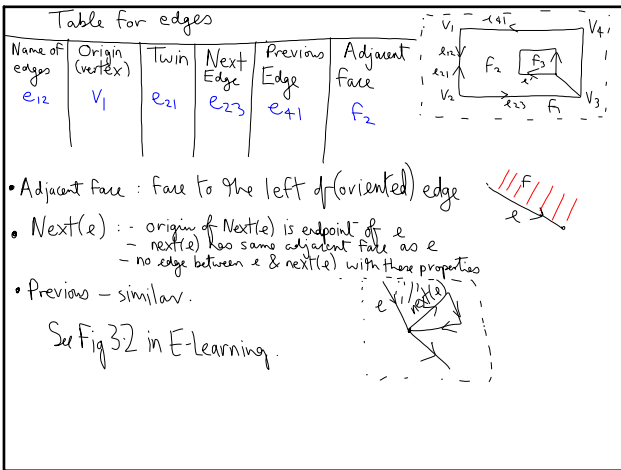 Table for edges
Name of edges
Origin (vertex)
Twin
Next Edge
Previous Edge
Adjacent Face
e12 V1 e21 e23 e41 F2
V1 e41 V4
e12 F2 F3
e21 e
V2 e23 F1 V3
• Adjacent face : face to the left of (oriented) edge
F
e
• Next(e) :- origin of Next(e) is endpoint of e
- next(e) has same adjacent face as e
- no edge between e & next(e) with these properties
• Previous - similar.
e next(e)
See Fig 3.2 in E-Learning.